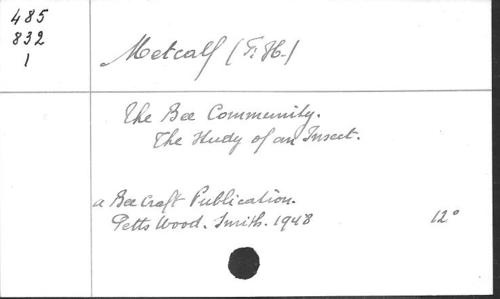 485
832
1
Metcalf (F. H.)
The Bee Community.
The Study of an Insect.
a Bee Craft Publication.
Petts Wood. Smith. 1948 12°